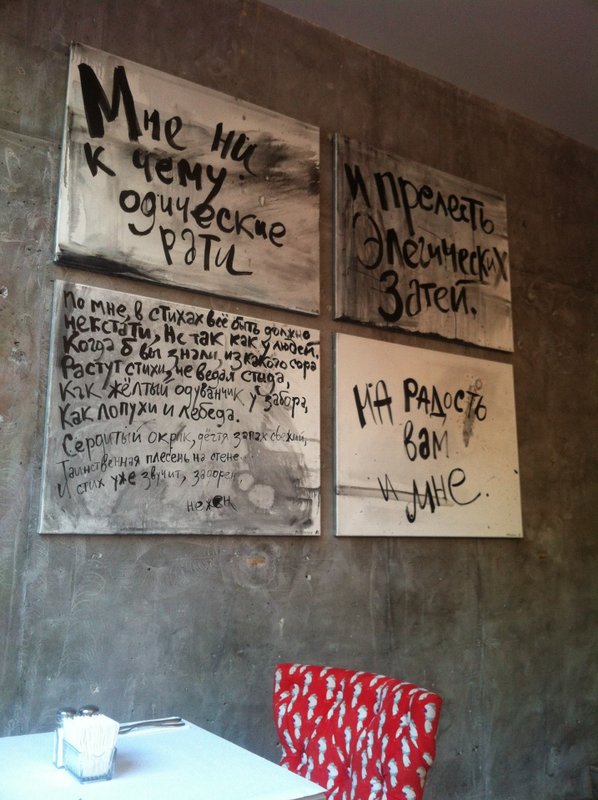 Мне ни
к чему
одические
рати
И прелесть
Элегических
Затей.
По мне, в стихах всё быть должно
некстати, Не так как у людей.
Когда б вы знали, из какого сора
Растут стихи, не ведая стыда,
Как жёлтый одуванчик у забора,
Как лопухи и лебеда.
Сердитый окрик, дёгтя запах свежий,
Таинственная плесень на стене...
И стих уже звучит, задорен,
нежен
НА РАДОСТЬ
вам
и мне.